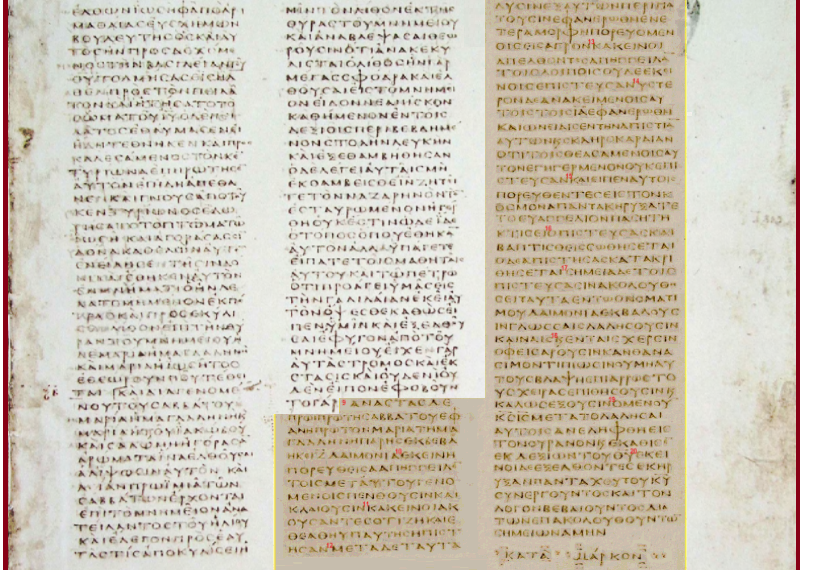 ΕΛΘΩΝΙΩϹΗΦΑΠΟΑΡΙ
ΜΑΘΑΙΑϹΕΥϹΧΗΜΩΝ
ΒΟΥΛΕΥΤΗϹΟϹΚΑΙΑΥ
ΤΟϹΗΝΠΡΟϹΔΕΧΟΜΕ
ΝΟϹΤΗΝΒΑϹΙΛΕΙΑΝΤΟΥ
ΘΥΤΟΛΜΗϹΑϹΕΙϹΗΛ
ΘΕΝΠΡΟϹΤΟΝΠΕΙΛΑ
ΤΟΝΚΑΙΗΤΗϹΑΤΟΤΟ
ϹΩΜΑΤΟΥΙΥΟΔΕΠΕΙ
ΛΑΤΟϹΕΘΑΥΜΑϹΕΝΕΙ
ΗΔΗΤΕΘΝΗΚΕΝΚΑΙΠΡΟϹ
ΚΑΛΕϹΑΜΕΝΟϹΤΟΝΚΕ
ΤΥΡΙΩΝΑΕΠΗΡΩΤΗϹΕ
ΑΥΤΟΝΕΙΗΔΗΑΠΕΘΑ
ΝΕΚΑΙΓΝΟΥϹΑΠΟΤΟΥ
ΚΕΝΤΥΡΙΩΝΟϹΕΔΩ
ΡΗϹΑΤΟΤΟΠΤΩΜΑΤΩ
ΙΩϹΗΚΑΙΑΓΟΡΑϹΑϹϹΙ
ΔΟΝΑΚΑΘΕΛΩΝΑΥΤΟ
ΕΝΕΙΛΗϹΕΝΤΗϹΙΝΔΟ
ΝΙΚΑΙΕΘΗΚΕΝΑΥΤΟΝ
ΕΝΜΝΗΜΑΤΙΟΗΝΛΕ
ΛΑΤΟΜΗΜΕΝΟΝΕΚΠΕ
ΤΡΑϹΚΑΙΠΡΟϹΕΚΥΛΙ
ϹΕΝΛΙΘΟΝΕΠΙΤΗΝΘΥ
ΡΑΝΤΟΥΜΝΗΜΕΙΟΥΗ
ΔΕΜΑΡΙΑΗΜΑΓΔΑΛΗΝΗ
ΚΑΙΜΑΡΙΑΗΙΩϹΗΤΟϹ
ΕΘΕΩΡΟΥΝΠΟΥΤΕΘΕΙ
ΤΑΙΚΑΙΔΙΑΓΕΝΟΜΕ
ΝΟΥΤΟΥϹΑΒΒΑΤΟΥΗ
ΜΑΡΙΑΗΜΑΓΔΑΛΗΝΗΚΑΙ
ΜΑΡΙΑΗΤΟΥΙΑΚΩΒΟΥ
ΚΑΙϹΑΛΩΜΗΗΓΟΡΑϹΑ
ΑΡΩΜΑΤΑΙΝΑΕΛΘΟΥϹΑΙ
ΑΛΙΨΩϹΙΝΑΥΤΟΝΚΑΙ
ΛΙΑΝΠΡΩΙΜΙΑΤΩΝ
ϹΑΒΒΑΤΩΝΕΡΧΟΝΤΑΙ
ΕΠΙΤΟΜΝΗΜΕΙΟΝΑΝΑ
ΤΕΙΛΑΝΤΟϹΤΟΥΗΛΙΟΥ
ΚΑΙΕΛΕΓΟΝΠΡΟϹΕΑΥ
ΤΑϹΤΙϹΑΠΟΚΥΛΙϹΕΙΗ
ΜΙΝΤΟΝΛΙΘΟΝΕΚΤΗϹ
ΘΥΡΑϹΤΟΥΜΝΗΜΕΙΟΥ
ΚΑΙΑΝΑΒΛΕΨΑϹΑΙΘΕΩ
ΡΟΥϹΙΝΟΤΙΑΝΑΚΕΚΥ
ΛΙϹΤΑΙΟΛΙΘΟϹΗΝΓΑΡ
ΜΕΓΑϹϹΦΟΔΡΑΚΑΙΕΛ
ΘΟΥϹΑΙΕΙϹΤΟΜΝΗΜΕΙ
ΟΝΕΙΔΟΝΝΕΑΝΙϹΚΟΝ
ΚΑΘΗΜΕΝΟΝΕΝΤΟΙϹ
ΔΕΞΙΟΙϹΠΕΡΙΒΕΒΛΗΜΕ
ΝΟΝϹΤΟΛΗΝΛΕΥΚΗΝ
ΚΑΙΕΞΕΘΑΜΒΗΘΗϹΑΝ
ΟΔΕΛΕΓΕΙΑΥΤΑΙϹΜΗ
ΕΚΘΑΜΒΕΙϹΘΕΙΝΖΗΤΕΙ
ΤΕΤΟΝΝΑΖΑΡΗΝΟΝΤΟ
ΕϹΤΑΥΡΩΜΕΝΟΝΗΓΕΡ
ΘΗΟΥΚΕϹΤΙΝΩΔΕΙΔΕ
ΟΤΟΠΟϹΟΠΟΥΕΘΗΚΑ
ΑΥΤΟΝΑΛΛΑΥΠΑΓΕΤΕ
ΕΙΠΑΤΕΤΟΙϹΜΑΘΗΤΑΙϹ
ΑΥΤΟΥΚΑΙΤΩΠΕΤΡΩ
ΟΤΙΠΡΟΑΓΕΙΥΜΑϹΕΙϹ
ΤΗΝΓΑΛΙΛΑΙΑΝΕΚΕΙΑΥ
ΤΟΝΟΨΕϹΘΕΚΑΘΩϹΕΙ
ΠΕΝΥΜΙΝΚΑΙΕΞΕΛΘΟΥ
ϹΑΙΕΦΥΓΟΝΑΠΟΤΟΥ
ΜΝΗΜΕΙΟΥΕΙΧΕΝΓΑΡ
ΑΥΤΑϹΤΡΟΜΟϹΚΑΙΕΚ
ϹΤΑϹΙϹΚΑΙΟΥΔΕΝΙΟΥ
ΔΕΝΕΙΠΟΝΕΦΟΒΟΥΝ
ΤΟΓΑΡ 9 ΑΝΑϹΤΑϹΔΕ
ΠΡΩΙΠΡΩΤΗϹΑΒΒΑΤΟΥΕΦ
ΑΝΗΠΡΩΤΟΝΜΑΡΙΑΤΗΜΑ
ΓΔΑΛΗΝΗΠΑΡΗϹΕΚΒΕΒΛ
ΗΚΕΙΖΔΑΙΜΟΝΙΑ10ΕΚΕΙΝΗ
ΠΟΡΕΥΘΕΙϹΑΑΠΗΓΓΕΙΛΕ
ΤΟΙϹΜΕΤΑΥΤΟΥΓΕΝΟ
ΜΕΝΟΙϹΠΕΝΘΟΥϹΙΚΑΙ
ΚΛΑΙΟΥϹΙ11ΚΑΚΕΙΝΟΙΑΚ
ΟΥϹΑΝΤΕϹΟΤΙΖΗΚΑΙΕ
ΘΕΑΘΗΥΠΑΥΤΗϹΗΠΙϹΤ
ΗϹΑΝ12ΜΕΤΑΔΕΤΑΥΤΑ
ΔΥϹΙΝΕΞΑΥΤΩΝΠΕΡΙΠΑ
ΤΟΥϹΙΝΕΦΑΝΕΡΩΘΗΕΝΕ
ΤΕΡΑΜΟΡΦΗΠΟΡΕΥΟΜΕΝ
ΟΙϹΕΙϹΑΓΡΟΝ13ΚΑΚΕΙΝΟΙ
ΑΠΕΛΘΟΝΤΕϹΑΠΗΓΓΕΙΛΑ
ΤΟΙϹΛΟΙΠΟΙϹΟΥΔΕΕΚΕΙ
ΝΟΙϹΕΠΙϹΤΕΥϹΑΝ14ΥϹΤΕ
ΡΟΝΔΕΑΝΑΚΕΙΜΕΝΟΙϹΑΥ
ΤΟΙϹΤΟΙϹΙΑΕΦΑΝΕΡΩΘΗ
ΚΑΙΩΝΕΙΔΙϹΕΝΤΗΝΑΠΙϹΤΙΑ
ΑΥΤΩΝΚϹΚΛΗΡΟΚΑΡΔΙΑΝ
ΟΤΙΤΟΙϹΘΕΑϹΑΜΕΝΟΙϹΑΥ
ΤΟΝΕΓΗΓΕΡΜΕΝΟΝΟΥΚΕΠΙ
ϹΤΕΥϹΑΝ15ΚΑΙΕΙΠΕΝΑΥΤΟΙϹ
ΠΟΡΕΥΘΕΝΤΕϹΕΙϹΤΟΝΚΟ
ϹΜΟΝΑΠΑΝΤΑΚΗΡΥΞΑΤΕ
ΤΟΕΥΑΓΓΕΛΙΟΝΠΑϹΗΤΗ
ΚΤΙϹΕΙ16ΟΠΙϹΤΕΥϹΑϹΚΑΙ
ΒΑΠΤΙϹΘΕΙϹϹΩΘΗϹΕΤΑΙ
ΟΔΕΑΠΙϹΤΗϹΑϹΚΑΤΑΚΡΙ
ΘΗϹΕΤΑΙ17ϹΗΜΕΙΑΔΕΤΟΙϹ
ΠΙϹΤΕΥϹΑϹΙΝΑΚΟΛΟΥΘΗ
ϹΕΙΤΑΥΤΑΕΝΤΩΟΝΟΜΑΤΙ
ΜΟΥΔΑΙΜΟΝΙΑΕΚΒΑΛΟΥϹ
ΙΝΓΛΩϹϹΑΙϹΛΑΛΗϹΟΥϹΙΝ
ΚΑΙΝΑΙϹ18ΚΕΝΤΑΙϹΧΕΡϹΙΝ
ΟΦΕΙϹΑΡΟΥϹΙΝΚΑΝΘΑΝΑ
ϹΙΜΟΝΤΙΠΙΩϹΙΝΟΥΜΗΑΥ
ΤΟΥϹΒΛΑΨΗΕΠΙΑΡΡΩϹΤΟ
ΥϹΧΕΙΡΑϹΕΠΙΘΗϹΟΥϹΙΝΚΑΙ
ΚΑΛΩϹΕΞΟΥϹΙΝ19ΟΜΕΝΟΥ
ΚϹΙϹΜΕΤΑΤΟΛΑΛΗϹΑΙ
ΑΥΤΟΙϹΑΝΕΛΗΦΘΗΕΙϹ
ΤΟΝΟΥΡΑΝΟΝΚΕΚΑΘΙϹΕ
ΕΚΔΕΞΙΩΝΤΟΥΘΥ20ΕΚΕΙ
ΝΟΙΔΕΕΞΕΛΘΟΝΤΕϹΕΚΗΡ
ΥΞΑΝΠΑΝΤΑΧΟΥΤΟΥΚΥ
ϹΥΝΕΡΓΟΥΝΤΟϹΚΑΙΤΟΝ
ΛΟΓΟΝΒΕΒΑΙΟΥΝΤΟϹΔΙΑ
ΤΩΝΕΠΑΚΟΛΟΥΘΟΥΝΤΩ
ϹΗΜΕΙΩΝΑΜΗΝ
ΚΑΤΑ ΜΑΡΚΟΝ